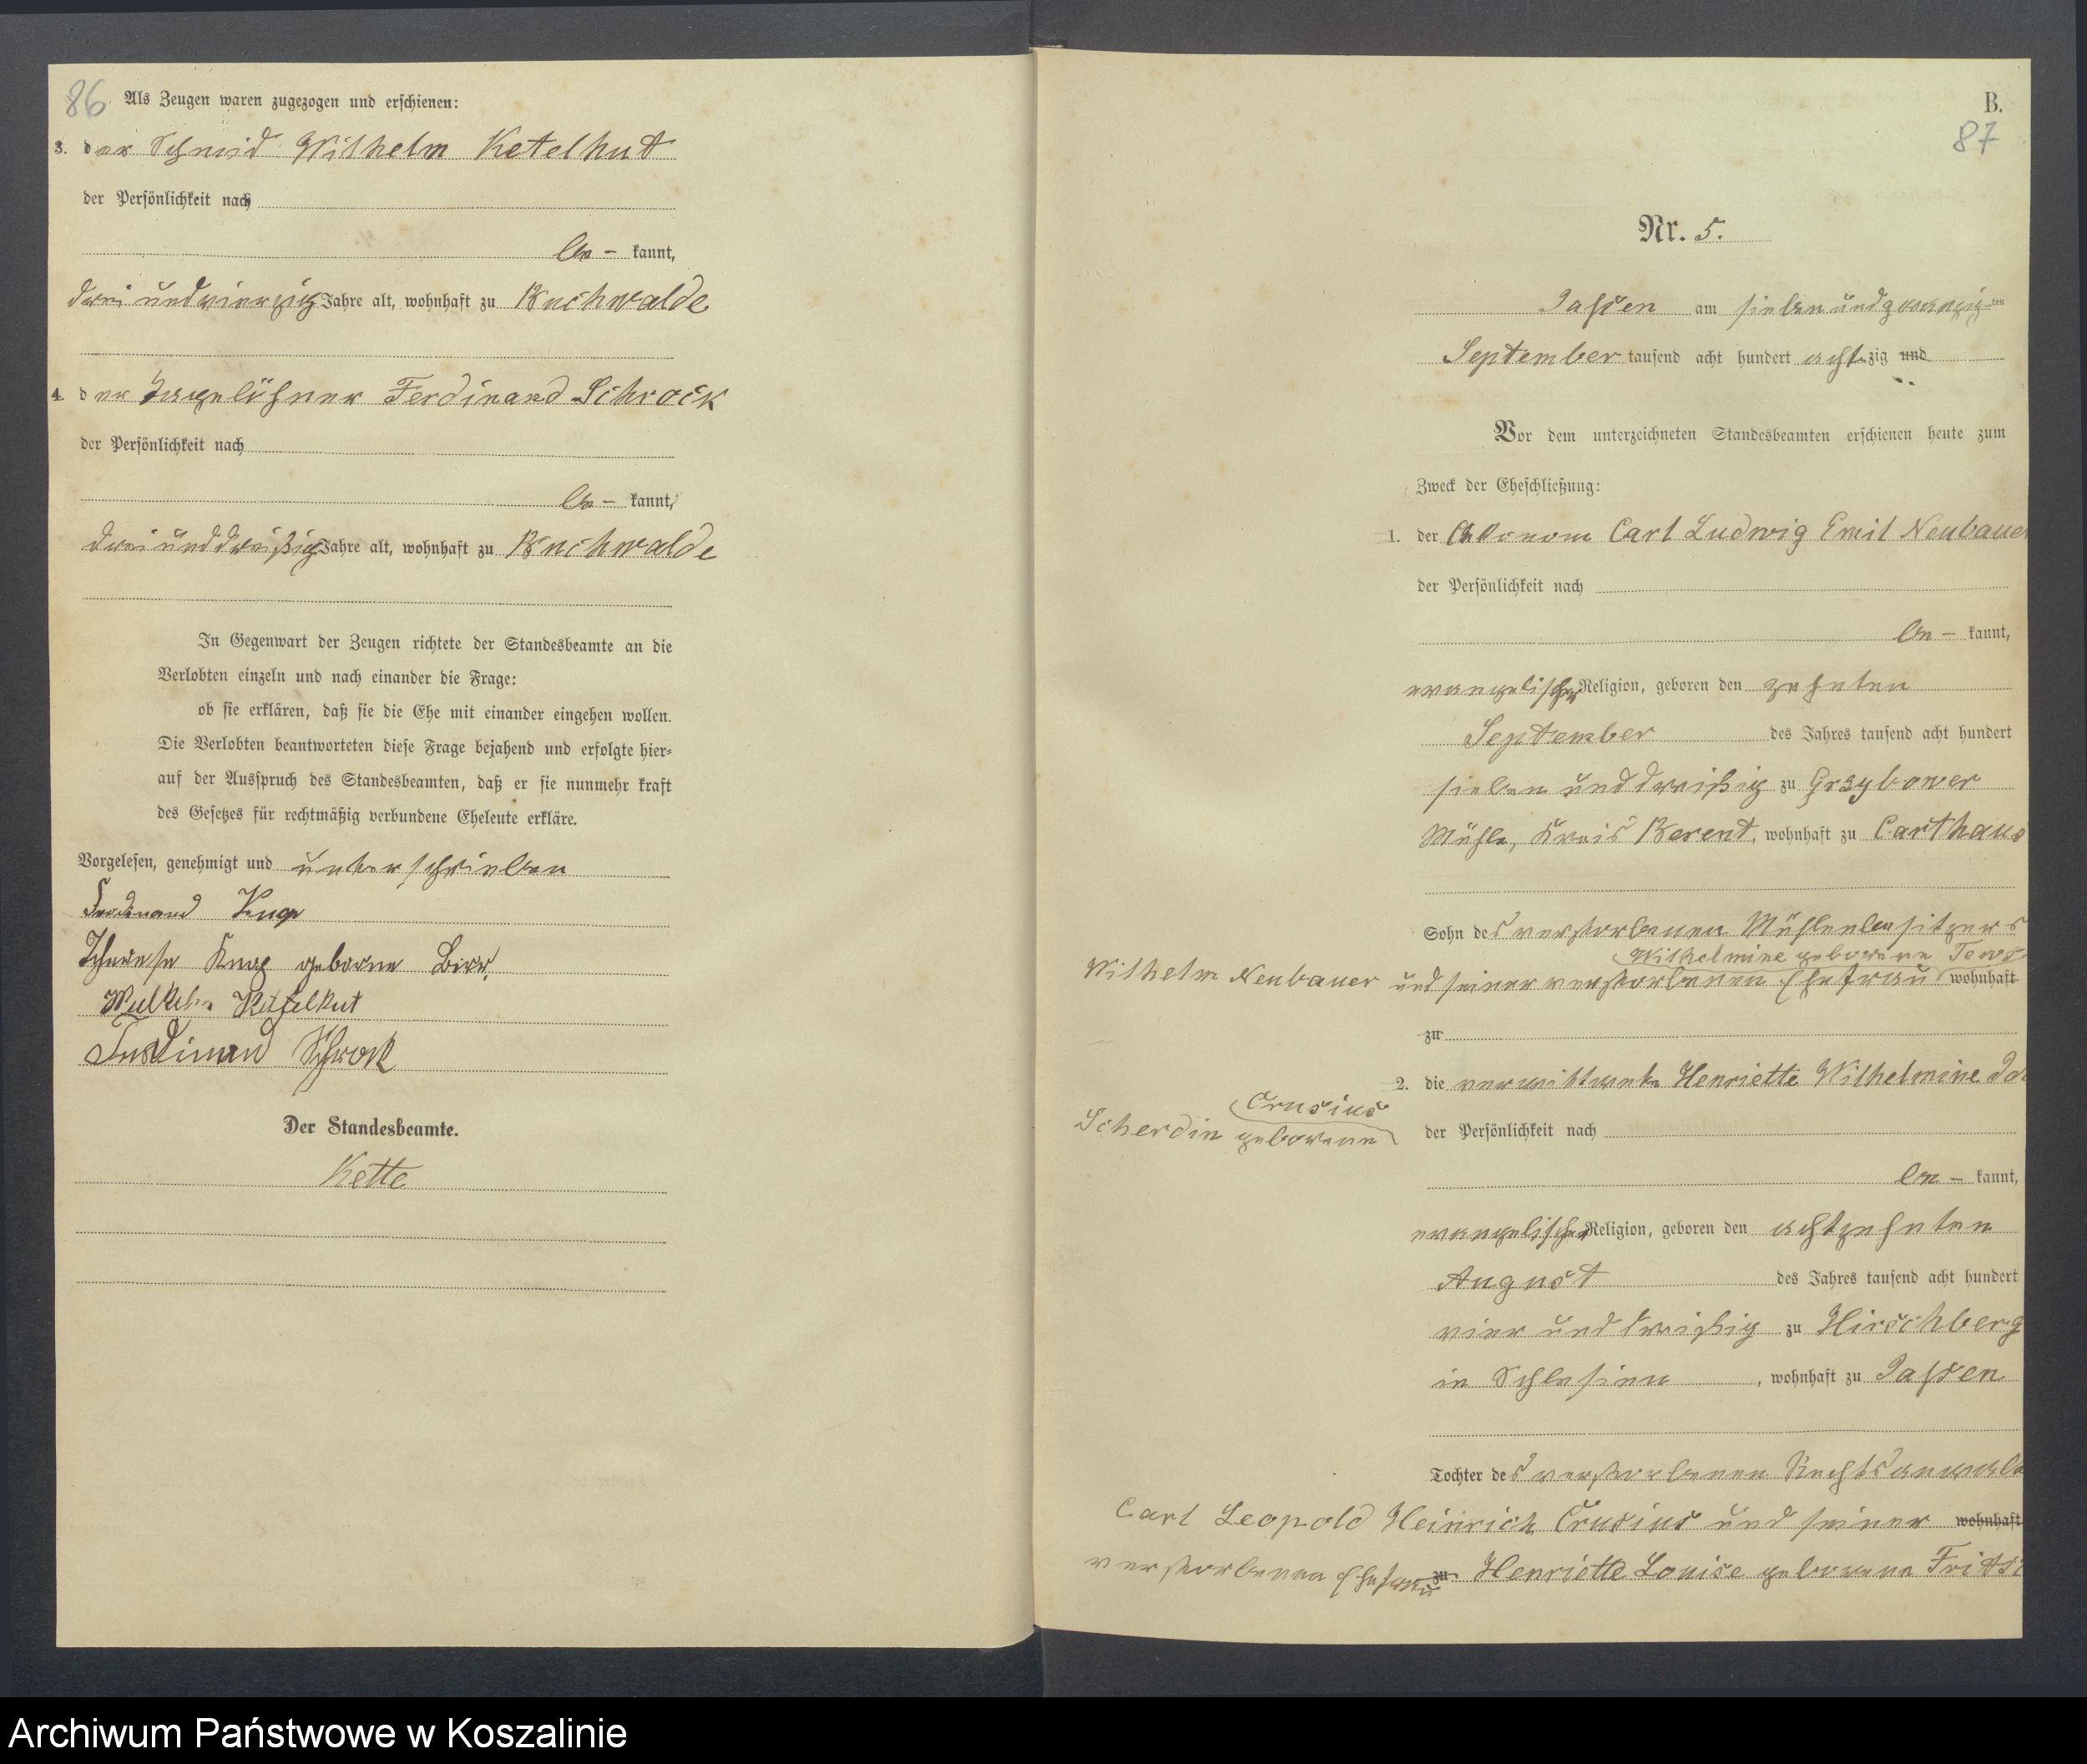 86
Als Zeugen waren zugezogen und erschienen:
3. der Schmid Wilhelm Ketelhut
der Persönlichkeit nach
be – kannt,
drei und vierzig Jahre alt, wohnhaft zu Buchwalde
4. der Tagelöhner Ferdinand Schrock
der Persönlichkeit nach
be – kannt,
drei und dreißig Jahre alt, wohnhaft zu Buchwalde
In Gegenwart der Zeugen richtete der Standesbeamte an die
Verlobten einzeln und nach einander die Frage:
ob sie erklären, daß sie die Ehe mit einander eingehen wollen.
Die Verlobten beantworteten diese Frage bejahend und erfolgte hier=
auf der Ausspruch des Standesbeamten, daß er sie nunmehr kraft
des Gesetzes für rechtmäßig verbundene Eheleute erkläre.
Vorgelesen, genehmigt und unterschrieben
Ferdinand
geborne
Ketelhut
Ferdinand Schrock
Der Standesbeamte.
Kette
B.
87
Nr. 5.
Jassen am sieben und zwanzigten
September tausend acht hundert achtzig und
Vor dem unterzeichneten Standesbeamten erschienen heute zum
Zweck der Eheschließung:
1. der Oekonom Carl Ludwig Emil Neubauer
der Persönlichkeit nach
be – kannt,
evangelischer Religion, geboren den zehnten
September des Jahres tausend acht hundert
sieben und dreißig zu Grzybower
Mühle, Kreis Berent, wohnhaft zu Carthaus
Sohn des verstorbenen Mühlenbesitzers
Wilhelmine geborene Tews
Wilhelm Neubauer und seiner verstorbenen Ehefrau wohnhaft
zu
2. die verwittwete Henriette Wilhelmine
Crusius
Scherdin geborene
der Persönlichkeit nach
be – kannt,
evangelischer Religion, geboren den achtzehnten
August des Jahres tausend acht hundert
vier und dreißig zu Hirschberg
in Schlesien, wohnhaft zu Jassen
Tochter des verstorbenen Rechtsanwalts
Carl Leopold Heinrich Crusius und seiner wohnhaft
verstorbenen Ehefrau zu Henriette Louise geborene
Archiwum Państwowe w Koszalinie